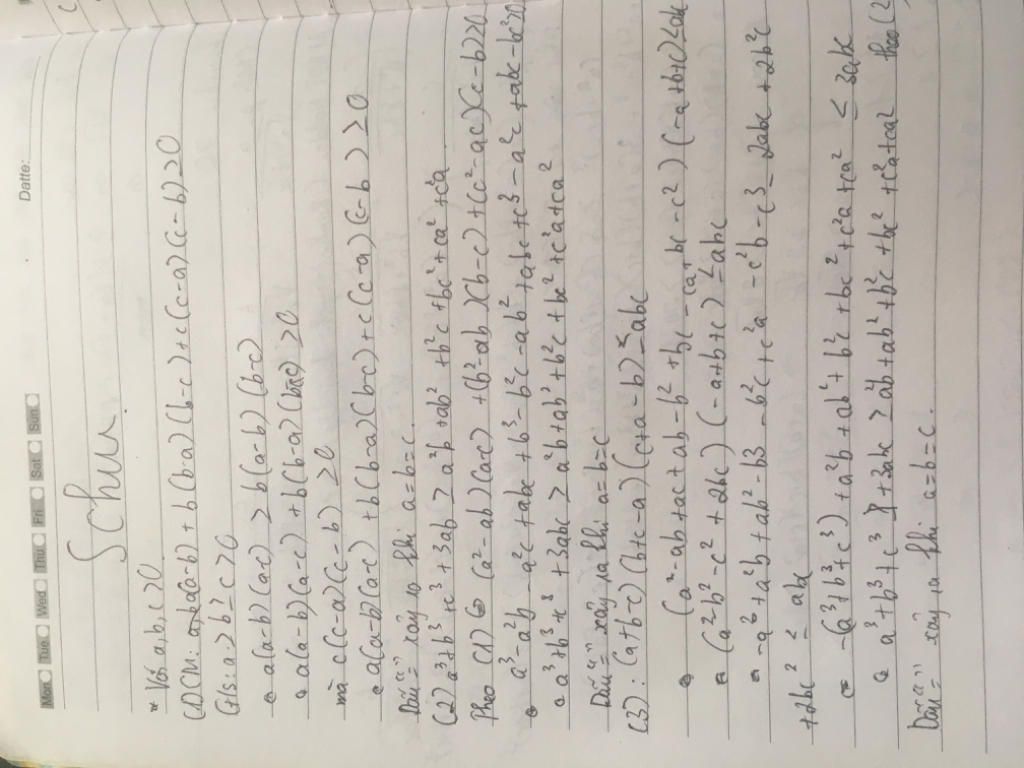 Mon Tue Wed Thu Fri Sat Sun Datte:
Schur.
* Với a, b, c ≥ 0
(1) CM: a(a-b) + b(b-a)(b-c) + c(c-a)(c-b) ≥ 0
G/s: a ≥ b ≥ c ≥ 0
a(a-b)(a-c) ≥ b(a-b)(b-c)
a(a-b)(a-c) + b(b-a)(b-c) ≥ 0
mà c(c-a)(c-b) ≥ 0
a(a-b)(a-c) + b(b-a)(b-c) + c(c-a)(c-b) ≥ 0
Dấu "=" xảy ra khi a=b=c.
(2) a³+b³+c³+3ab ≥ a²b+ab²+b²c+bc²+ca²+c²a
Theo (1) (a²-ab)(a-c) + (b²-ab)(b-c) + (c²-ac)(c-b) ≥ 0
a³-a²b-a²c+abc+b³-b²c-ab²+abc+c³-a²c+abc-bc² ≥ 0
a³+b³+c³+3abc ≥ a²b+ab²+b²c+bc²+c²a+ca²
Dấu "=" xảy ra khi a=b=c
(3): (a+b-c)(b+c-a)(c+a-b) ≤ abc
(a²-ab+ac+ab-b²+bc-ca+bc-c²)(-a+b+c) ≤ abc
(a²-b²-c²+2bc)(-a+b+c) ≤ abc
-a²+a²b+ab²-b3-b²c+c²a-c²b-c³-2abc+2b²c
+2bc² ≤ abc
-(a³+b³+c³)+a²b+ab²+b²c+bc²+c²a+ca² ≤ 3abc
a³+b³+c³+3abc ≥ a²b+ab²+b²c+bc²+c²a+ca² theo (2)
Dấu "=" xảy ra khi a=b=c.